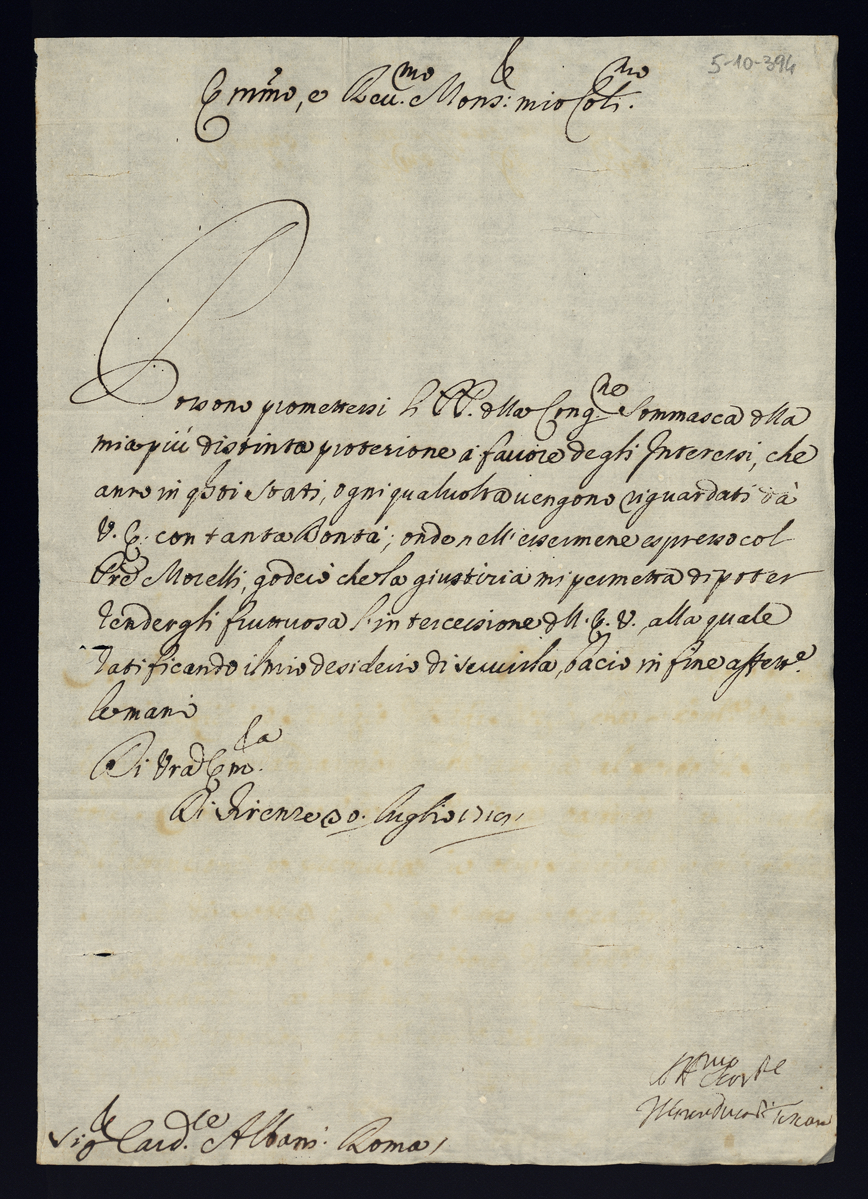 5-10-394
Em̃mo, e Reu.mo Mons:le mio Col.mo
Possono promettersi li PP. della Cong.ne Sommasca della
mia più distinta protezione à fauore degli Interessi, che
anno in q̃sti Stati, ogni qual uolta uengono riguardati dà
V. E. con tanta Bontà; onde nell'essermene espresso col
Pr̃e Morelli, goderò che la giustizia mi permetta di poter
rendergli fruttuosa l'intercessione dell' E. V. alla quale
ratificando il mio desiderio di seruirla, bacio in fine affett.e
le mani
Di Vra Em.za
Di Firenze 30. luglio
Aff.mo Ser.re
di Toscana
Sig.le Card.le Albani. Roma